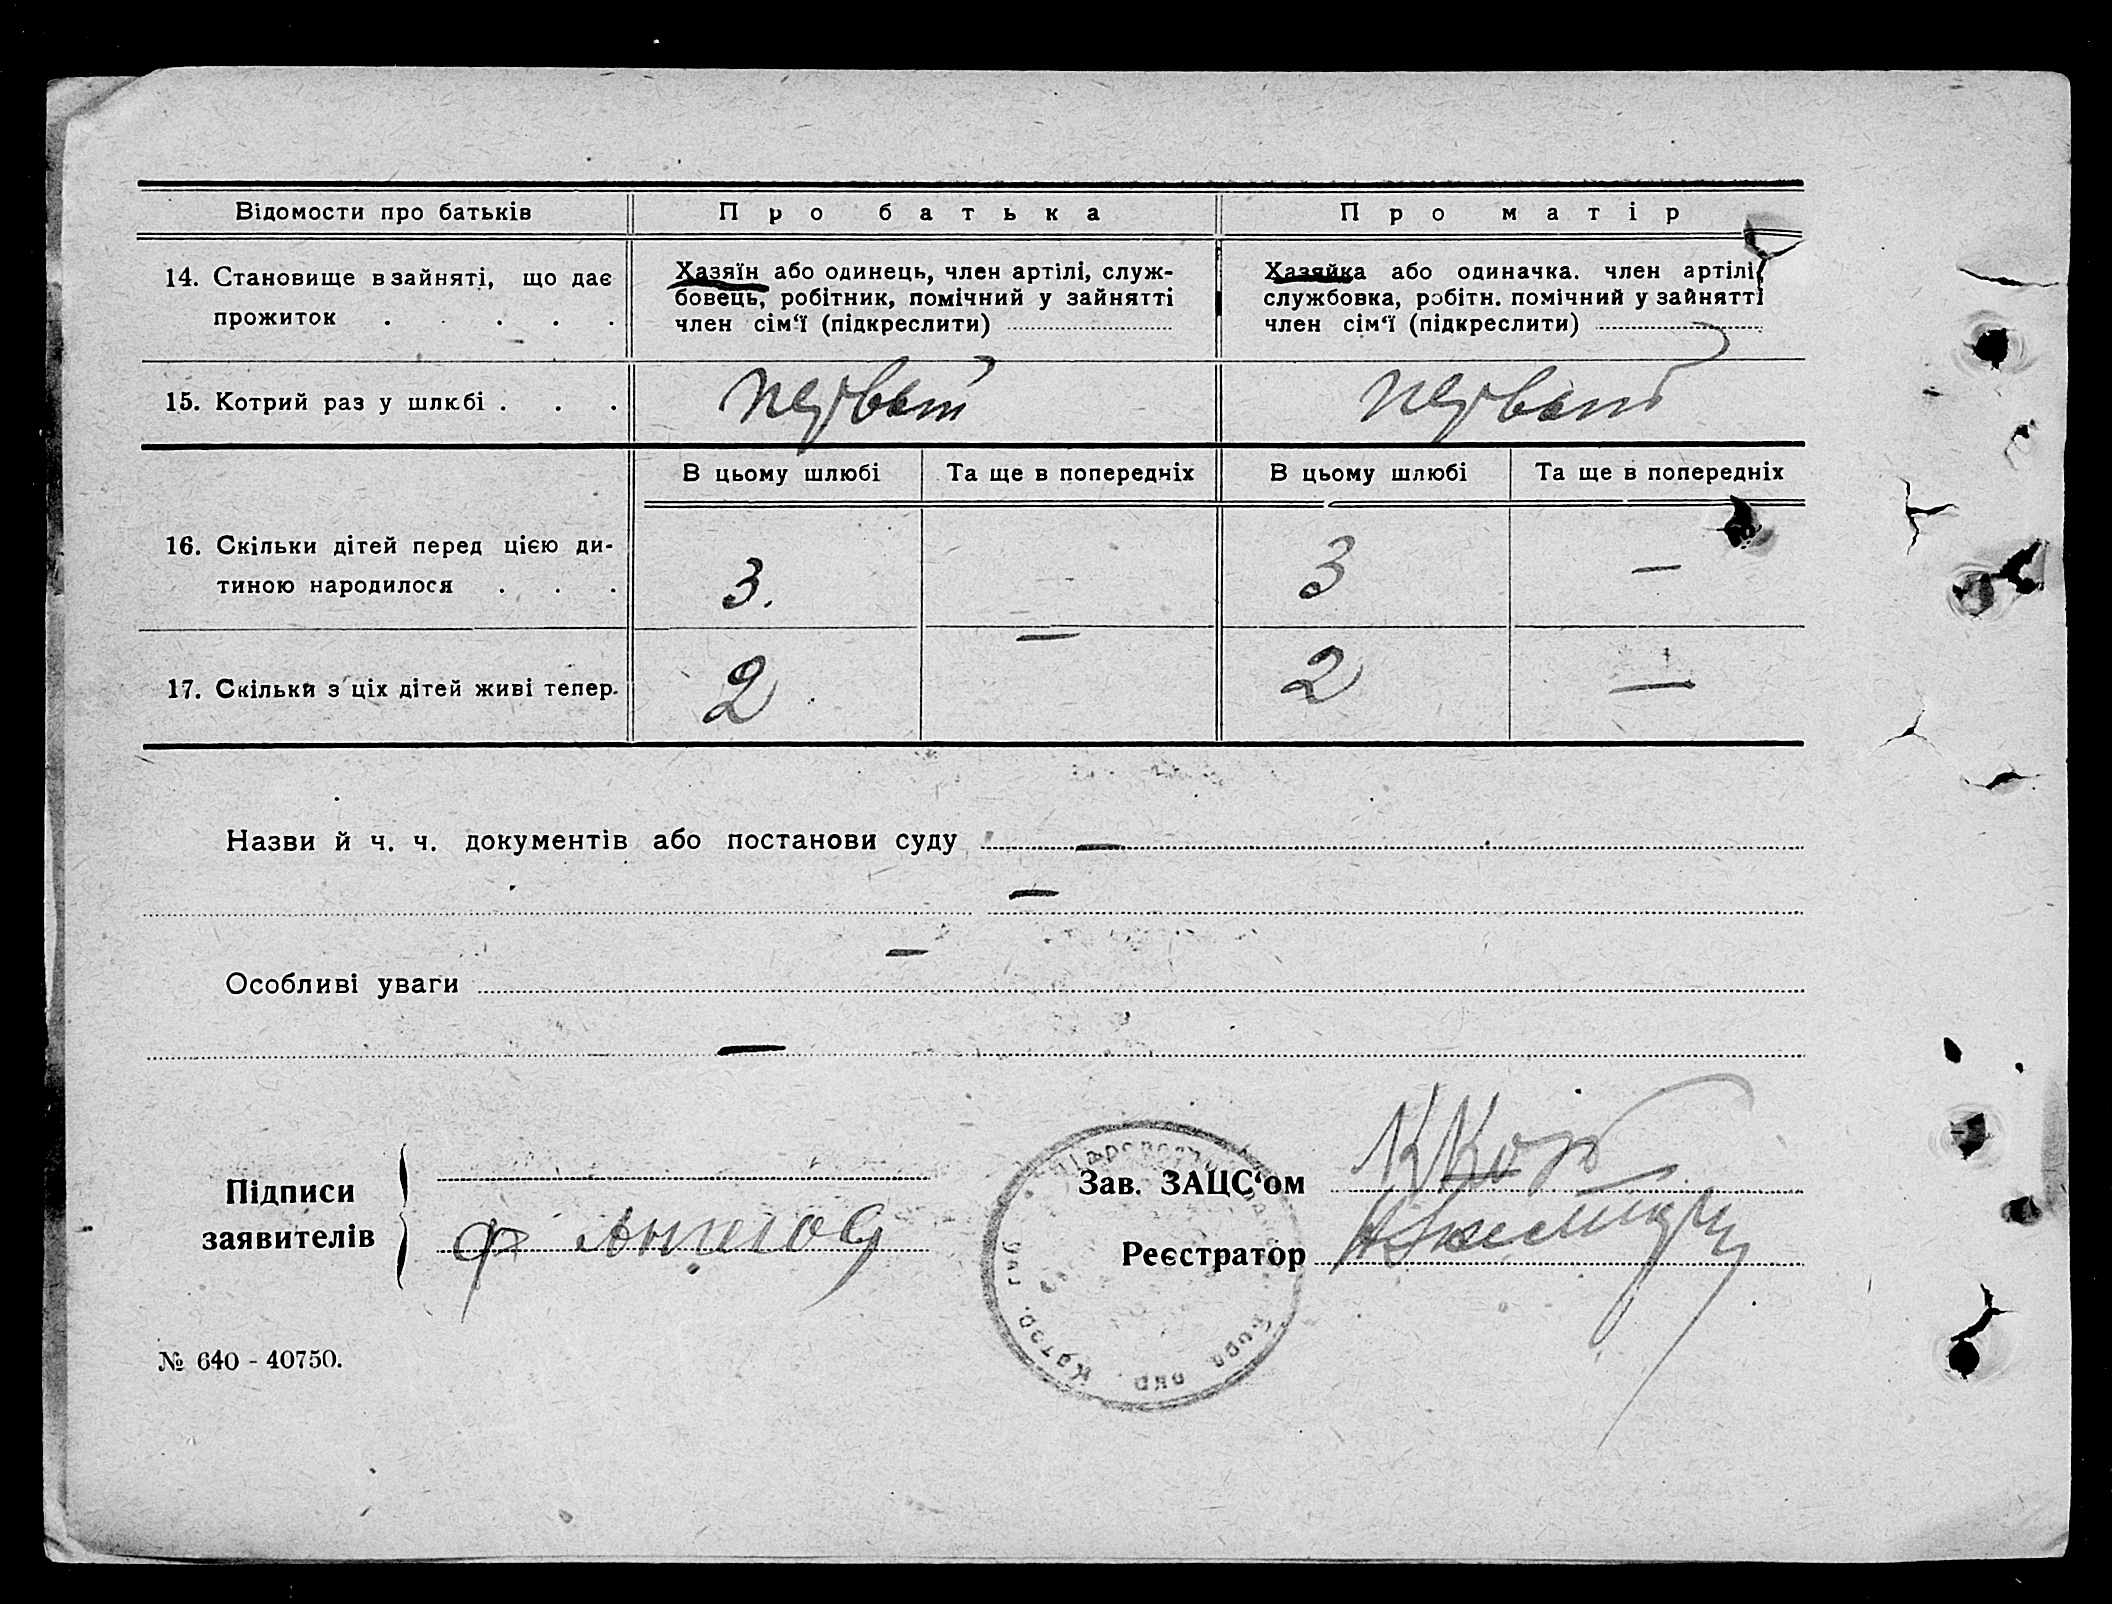 Відомости про батьків Про батька Про матір
14. Становище в зайняті, що дає прожиток . . . . .
Хазяїн або одинець, член артілі, служ-
бовець, робітник, помічний у зайнятті
член сім‘ї (підкреслити)
Хазяйка або одиначка. член артілі,
службовка, робітн. помічний у зайнятті
член сім‘ї (підкреслити)
15. Котрий раз у шлюбі . . . первый первый
В цьому шлюбі Та ще в попередніх В цьому шлюбі Та ще в попередніх
16. Скільки дітей перед цією ди-
тиною народилося . . . 3. 3 —
—
17. Скільки з ціх дітей живі тепер. 2 2 —
Назви й ч. ч. документів або постанови суду —
—
—
Особливі уваги
—
Підписи
заявителів
Зав. ЗАЦС‘ом
Реєстратор
№ 640 - 40750.